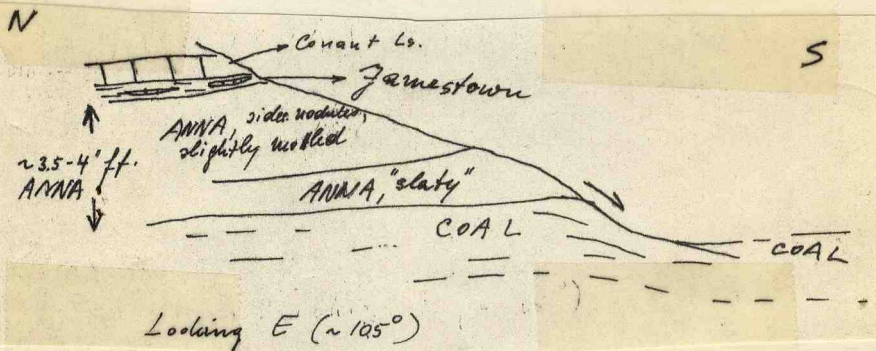 N
S
Conant Ls.
Jamestown
ANNA, sider. nodules,
slightly mottled
~3.5-4' ff.
ANNA
ANNA, "slaty"
COAL
COAL
Looking E (~105°)